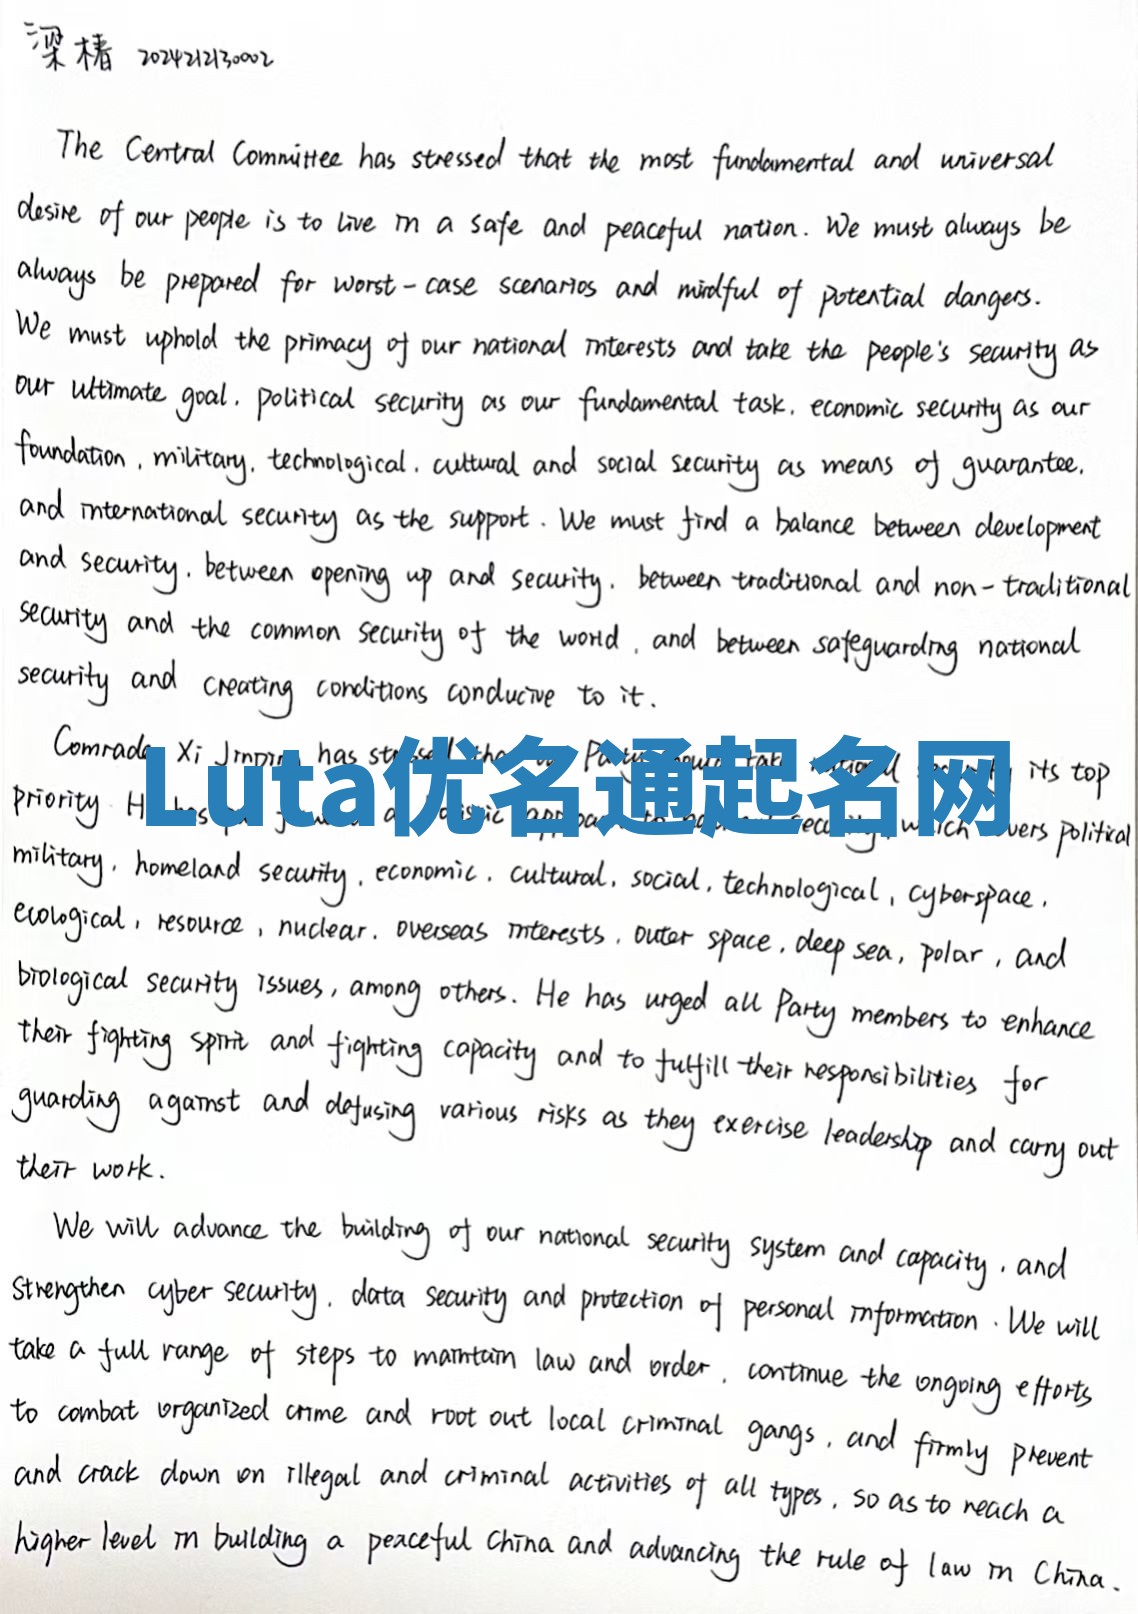 梁椿 2024212130002
The Central Committee has stressed that the most fundamental and universal
desire of our people is to live in a safe and peaceful nation. We must always be
always be prepared for worst-case scenarios and mindful of potential dangers.
We must uphold the primacy of our national interests and take the people's security as
our ultimate goal, political security as our fundamental task, economic security as our
foundation, military, technological, cultural and social security as means of guarantee,
and international security as the support. We must find a balance between development
and security, between opening up and security, between traditional and non-traditional
security and the common security of the world, and between safeguarding national
security and creating conditions conducive to it.
Comrade Xi Jinping has stressed its top
Luta优名通起名网
priority which political
military, homeland security, economic, cultural, social, technological, cyberspace,
ecological, resource, nuclear, overseas interests, outer space, deep sea, polar, and
biological security issues, among others. He has urged all Party members to enhance
their fighting spirit and fighting capacity and to fulfill their responsibilities for
guarding against and defusing various risks as they exercise leadership and carry out
their work.
We will advance the building of our national security system and capacity, and
strengthen cyber security, data security and protection of personal information. We will
take a full range of steps to maintain law and order, continue the ongoing efforts
to combat organized crime and root out local criminal gangs, and firmly prevent
and crack down on illegal and criminal activities of all types, so as to reach a
higher level in building a peaceful China and advancing the rule of law in China.